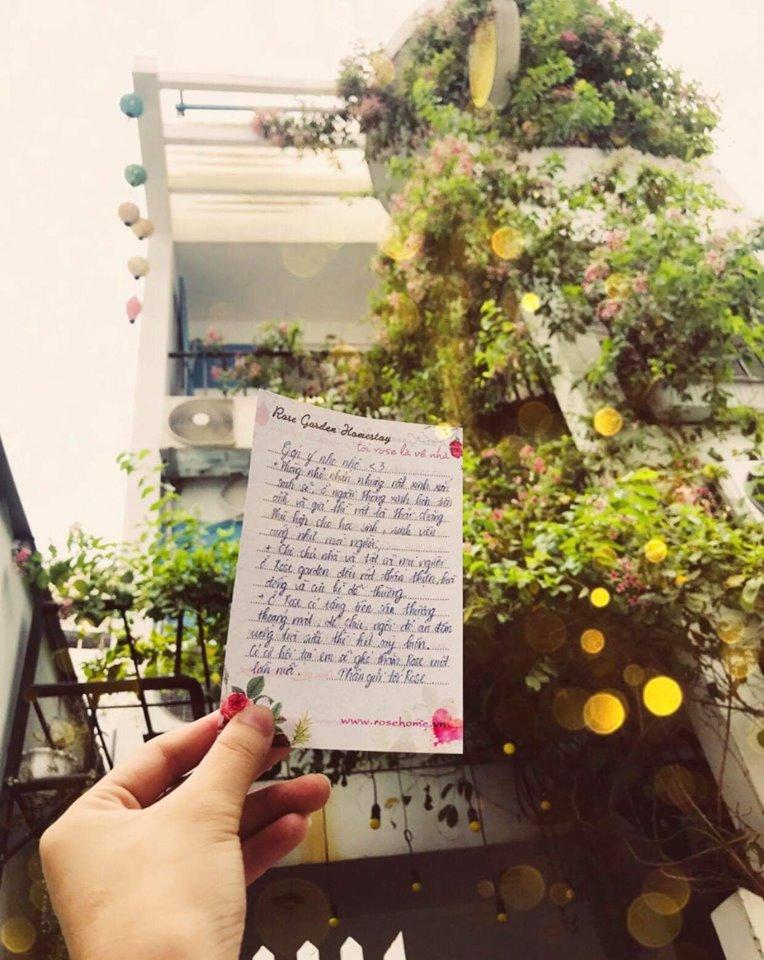 Rose Garden Homestay
tới rose là về nhà
Gợi ý nho nhỏ <3
+ Phòng nhỏ nhắn nhưng rất xinh xắn
sạch sẽ, ở ngoài thông xanh bên
và giá thì rất là phải chăng
phù hợp cho học sinh, sinh viên
cũng như mọi người.
+ Chị chủ nhà và tất cả mọi người
ở Rose garden đều rất thân thiện, hoà
đồng và cực kì dễ thương
+ Ở Rose có tầng trên sân thượng
thoáng mát, dễ chịu, ngồi để ăn đêm
uống trà sữa thì hết sẩy luôn.
Có cơ hội tụi em sẽ ghé thăm Rose một
lần nữa. Thân gửi tới Rose
www.rosehome.vn